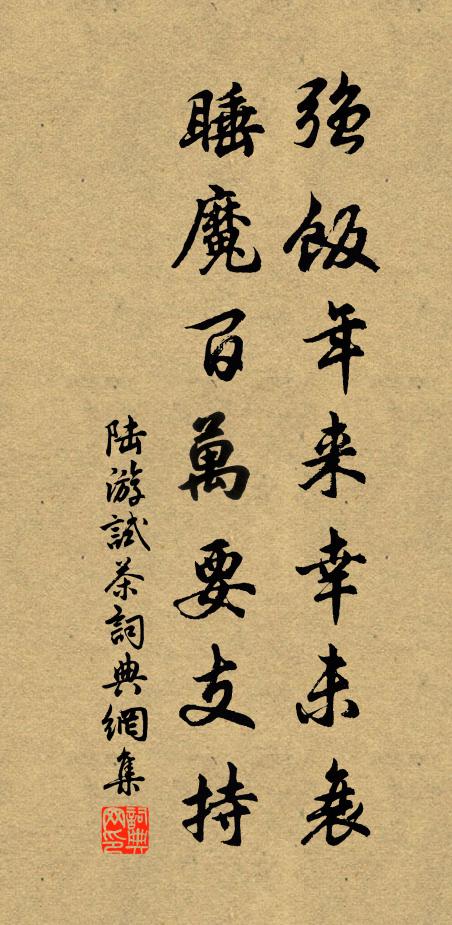 強飯年来幸未衰
睡魔百萬要支持
陸游試茶詞典網集
詞典网印